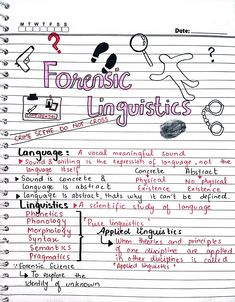 M T W T F S S
Date:
Forensic
Linguistics
CRIME SCENE DO NOT CROSS
Language: A vocal meaningful sound
Sound & writing is the expression of language, not the
language itself
Concrete Abstract
Sound is concrete & Physical No Physical
language is abstract Existence Existence
Language is abstract, thats why it can't be defined.
Linguistics A scientific study of language
Phonetics
Phonology
Morphology
Syntax
Semantics
Pragmatics
"Pure linguistics"
Applied Linguistics
When theories and principles
of one discipline are applied
in other disciplines is called
"Applied linguistics"
Forensic Science
To explore the
identity of unknown